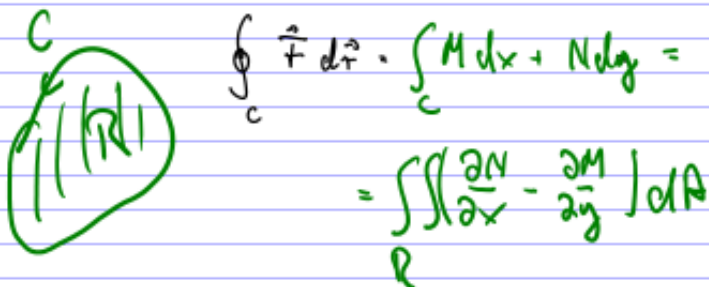 C
R
∮_C F⃗ dr⃗ = ∫_C M dx + N dy =
= ∬_R (∂N/∂x - ∂M/∂y) dA